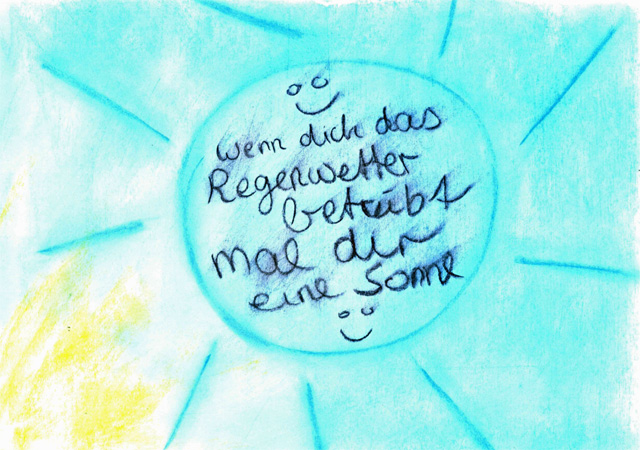 wenn dich das
Regenwetter
betrübt
mal dir
eine Sonne